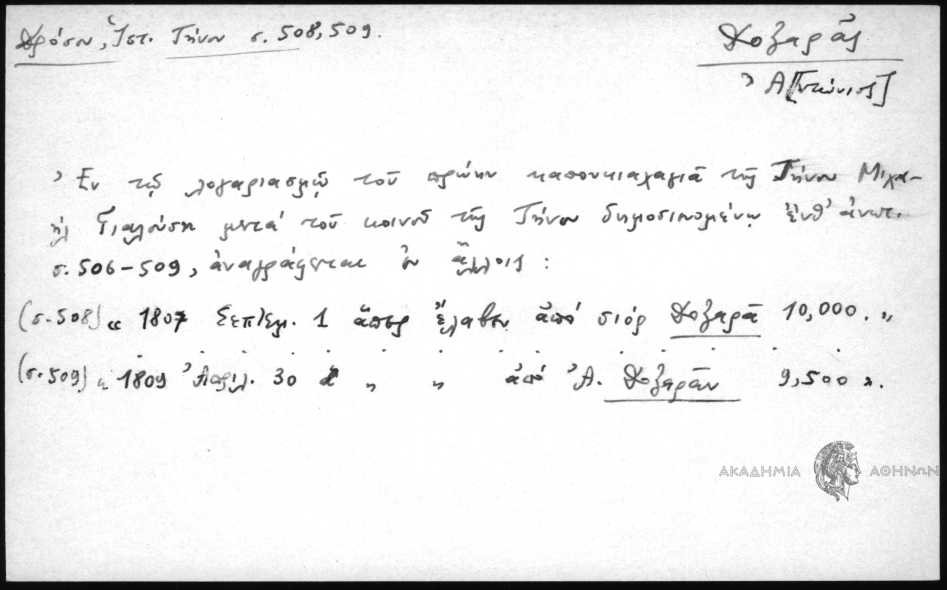 Δρόσου, Ἱστ. Τήνου σ. 508, 509.
Δοξαρᾶς
Ἀ[ντώνιος]
Ἐν τῷ λογαριασμῷ τοῦ πρώην καπουκιαχαγιᾶ τῆς Τήνου Μιχα-
ὴλ μετὰ τοῦ κοινοῦ τῆς Τήνου δημοσιευομένῳ ἔνθ' ἀνωτ.
σ. 506-509, ἀναγράφεται ἐν ἄλλοις:
(σ. 508) « 1807 Σεπτεμ. 1 ἄπερ ἔλαβεν ἀπὸ σιὸρ Δοξαρᾶ 10,000. »
(σ. 509) « 1809 Ἀπρίλ. 30 „ „ ἀπὸ Ἀ. Δοξαρᾶν 9,500 ».
ΑΚΑΔΗΜΙΑ ΑΘΗΝΩΝ